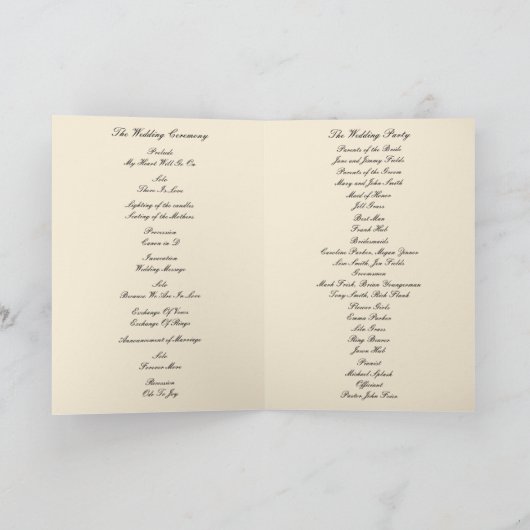 The Wedding Ceremony
Prelude
My Heart Will Go On
Solo
There Is Love
Lighting of the candles
Seating of the Mothers
Procession
Canon in D
Invocation
Wedding Message
Solo
Because We Are In Love
Exchange Of Vows
Exchange Of Rings
Announcement of Marriage
Solo
Forever More
Recession
Ode To Joy
The Wedding Party
Parents of the Bride
Jane and Jimmy Fields
Parents of the Groom
Mary and John Smith
Maid of Honor
Jill Grass
Best Man
Frank Hub
Bridesmaids
Caroline Parker, Megan
Smith, Jen Fields
Groomsmen
Mark Fresh, Brian Youngerman
Tony Smith, Rich Plank
Flower Girls
Emma Parker
Lila Grass
Ring Bearer
Jason Hub
Pianist
Michael Splash
Officiant
Pastor John